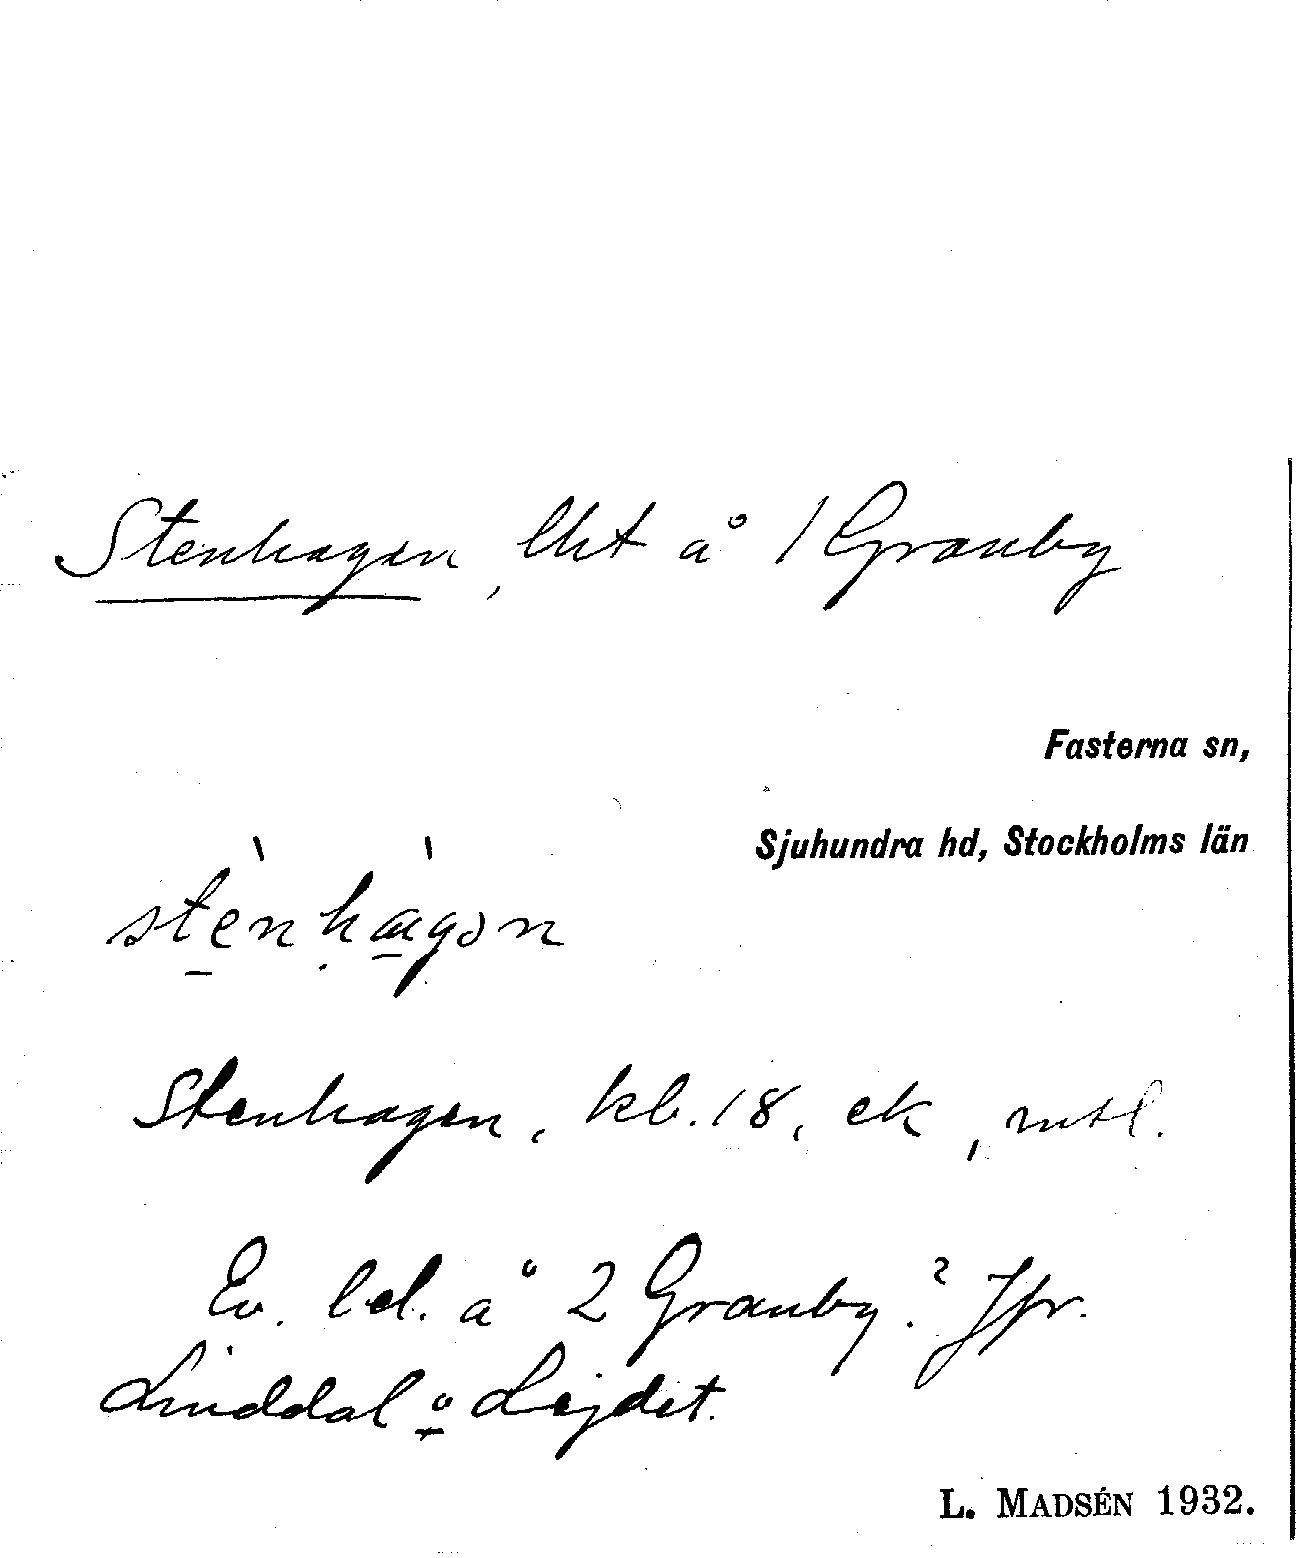 Stenhagen, lht å 1 Granby
Fasterna sn,
Sjuhundra hd, Stockholms län
stènhàgən
Stenhagen, kb. 18, ek, mtl.
Ev. bel. å 2 Granby? Jfr.
Linddal o Lejdet.
L. MADSÉN 1932.